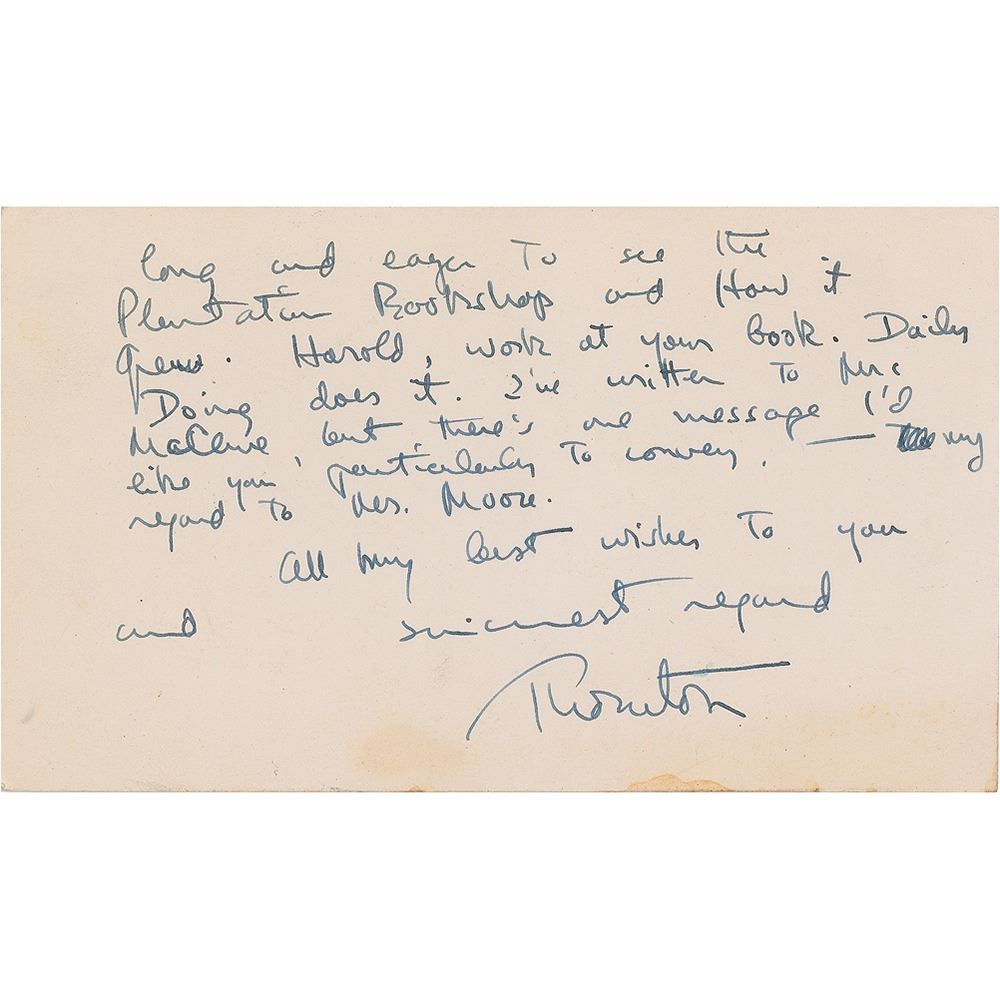 long and eager to see the
Plantation Bookshop and How it
grew. Harold, work at your book. Daily
Doing does it. I've written to Mrs
McClure, but there's one message I'd
like you, particularly to convey, — my
regard to Mrs. Moore.
All my best wishes to you
and sincerest regard
Thornton